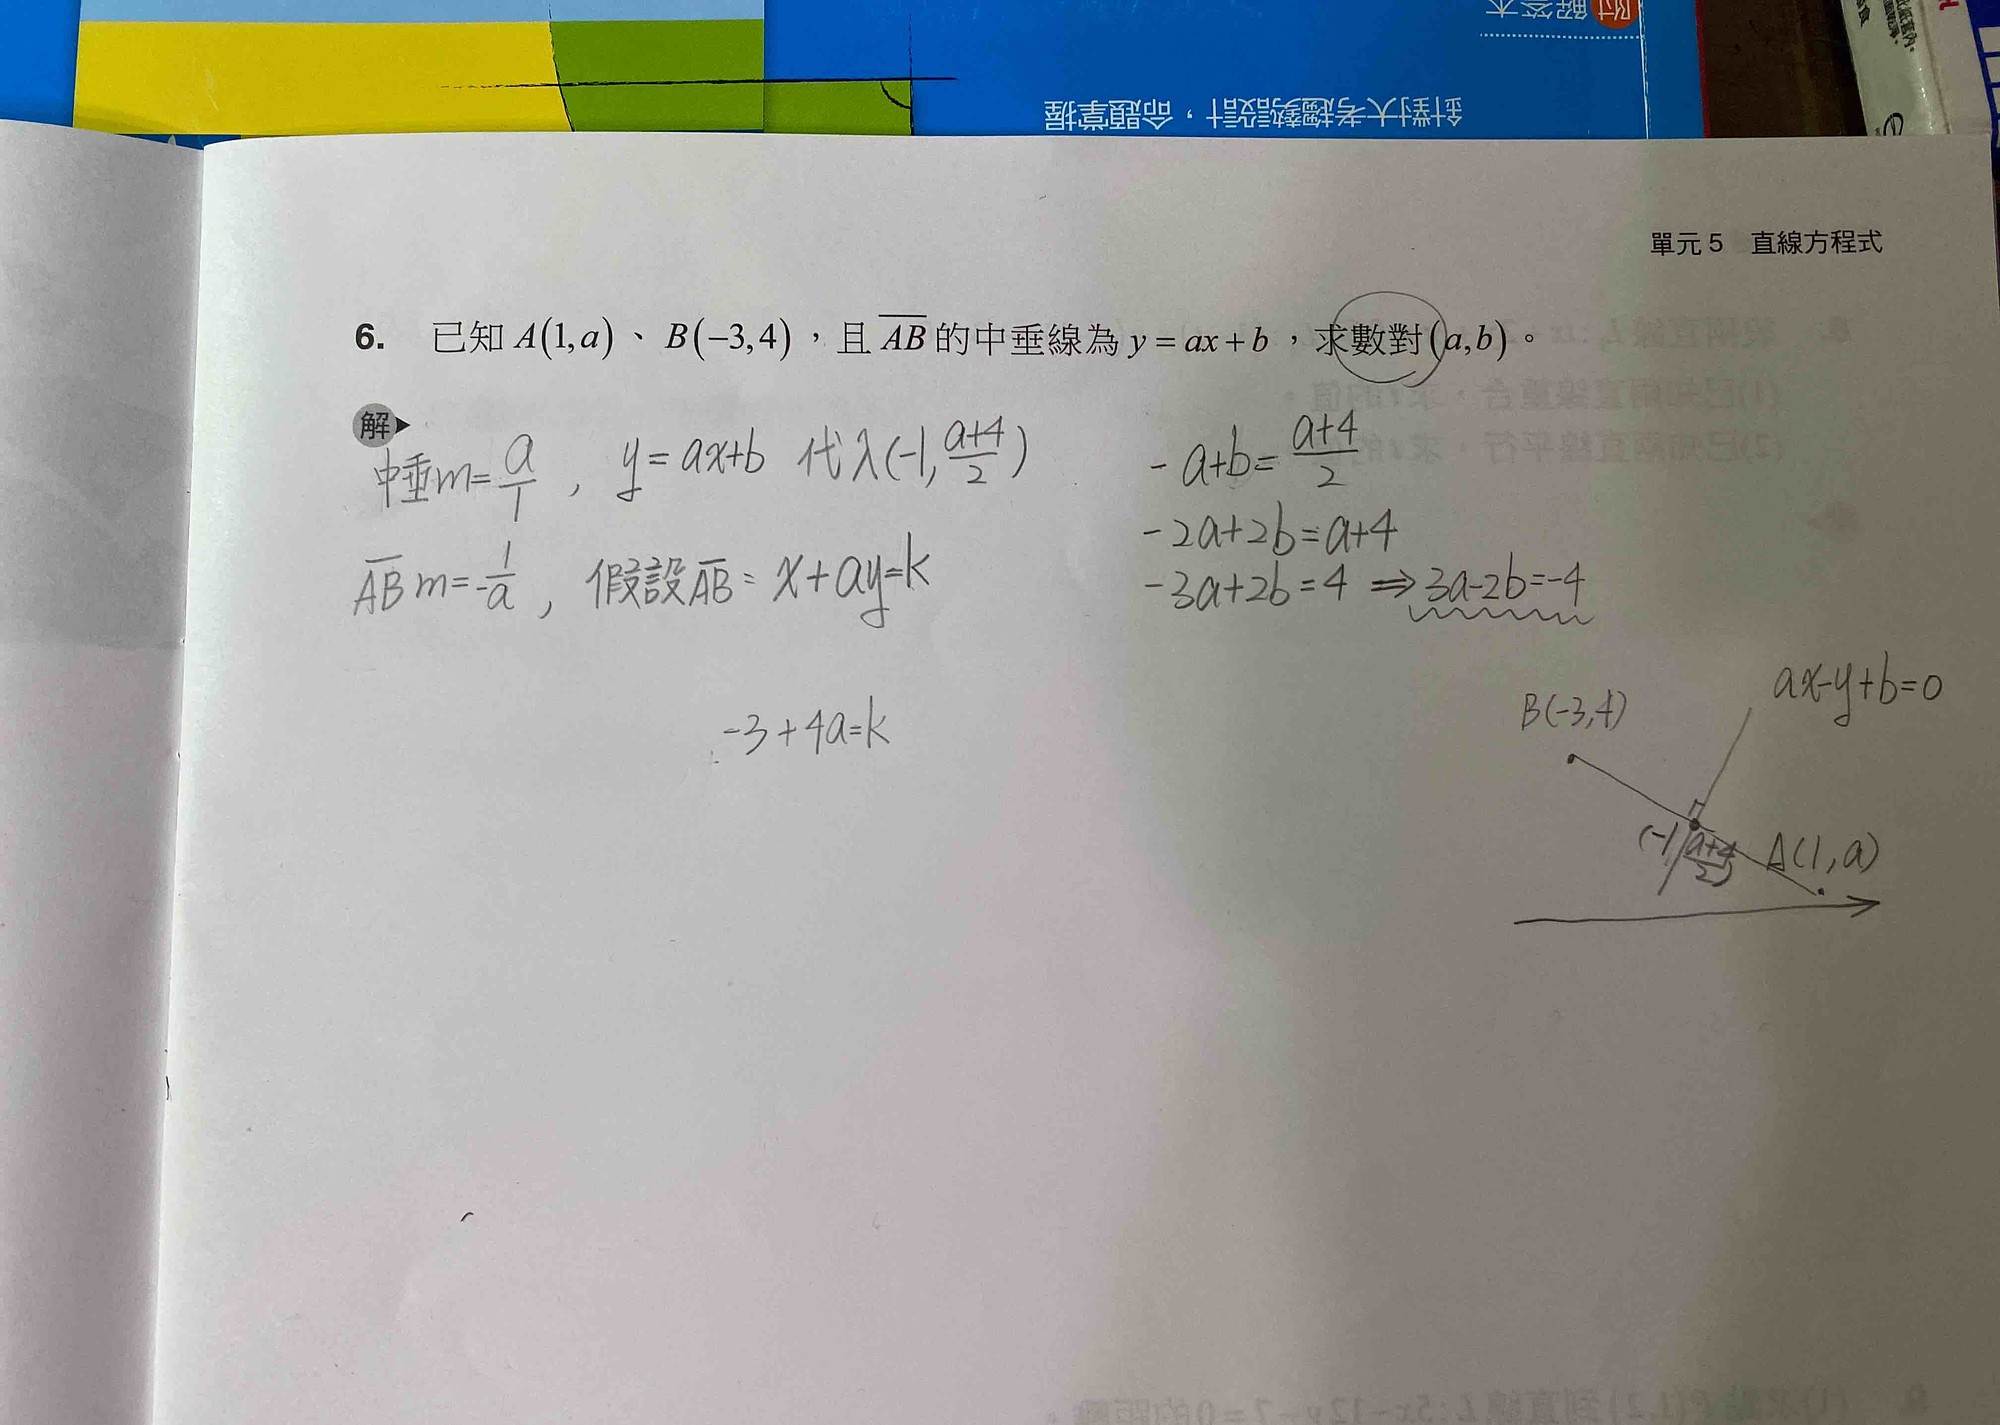 附解答本
針對大考趨勢設計，命題掌握
單元 5 直線方程式
6. 已知 A(1,a)、B(−3,4)，且 \overline{AB} 的中垂線為 y = ax + b，求數對(a,b)。
解
中垂m=\frac{a}{1}, y=ax+b 代入(-1,\frac{a+4}{2})
\overline{AB} m=-\frac{1}{a}, 假設\overline{AB}: x+ay=k
-3+4a=k
-a+b=\frac{a+4}{2}
-2a+2b=a+4
-3a+2b=4 ⇒ 3a-2b=-4
B(-3,4)
ax-y+b=0
(-1,\frac{a+4}{2})
A(1,a)